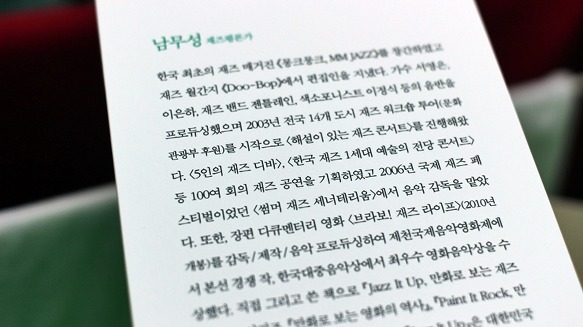 남무성 재즈평론가
한국 최초의 재즈 매거진 《몽크몽크, MM JAZZ》를 창간하였고
재즈 월간지 《Doo-Bop》에서 편집인을 지냈다. 가수 서영은,
이은하, 재즈 밴드 젠틀레인, 색소포니스트 이정식 등의 음반을
프로듀싱했으며 2003년 전국 14개 도시 재즈 워크숍 투어(문화
관광부 후원)를 시작으로 〈해설이 있는 재즈 콘서트〉를 진행해왔
다. 〈5인의 재즈 디바〉, 〈한국 재즈 1세대 예술의 전당 콘서트〉
등 100여 회의 재즈 공연을 기획하였고 2006년 국제 재즈 페
스티벌이었던 〈썸머 재즈 세너테리움〉에서 음악 감독을 맡았
다. 또한, 장편 다큐멘터리 영화 〈브라보! 재즈 라이프〉(2010년
개봉)를 감독/제작/음악 프로듀싱하여 제천국제음악영화제에
서 본선 경쟁 작, 한국대중음악상에서 최우수 영화음악상을 수
상했다. 직접 그리고 쓴 책으로 『Jazz It Up, 만화로 보는 재즈
『만화로 보는 영화의 역사』, 『Paint It Rock, 만
It Up』은 대한민국